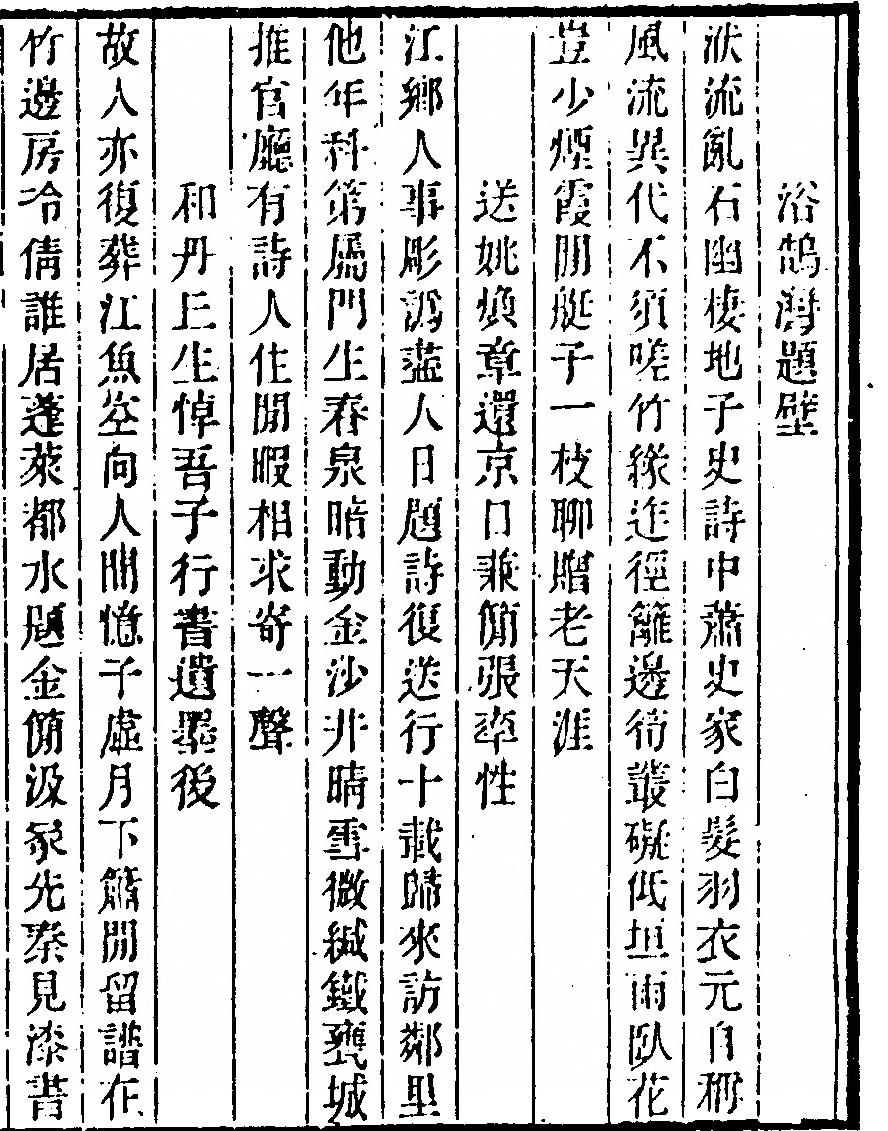 浴鵠灣題壁
洑流亂石幽棲地子史詩中蕭史家白髮羽衣元自稱
風流異代不須嗟竹緣迮徑籬邊筍叢礙低垣雨臥花
豈少煙霞閒艇子一枝聊贈老天涯
送姚煥章還京口兼簡張率性
江鄉人事彫謝盡人日題詩復送行十載歸來訪鄰里
他年科第屬門生春泉暗動金沙井晴雪微緘鐵甕城
推官廳有詩人住閒暇相求寄一聲
和丹丘生悼吾子行書遺墨後
故人亦復葬江魚空向人間憶子虛月下簫閒留譜在
竹邊房冷倩誰居蓬萊都水題金簡汲冢先秦見漆書